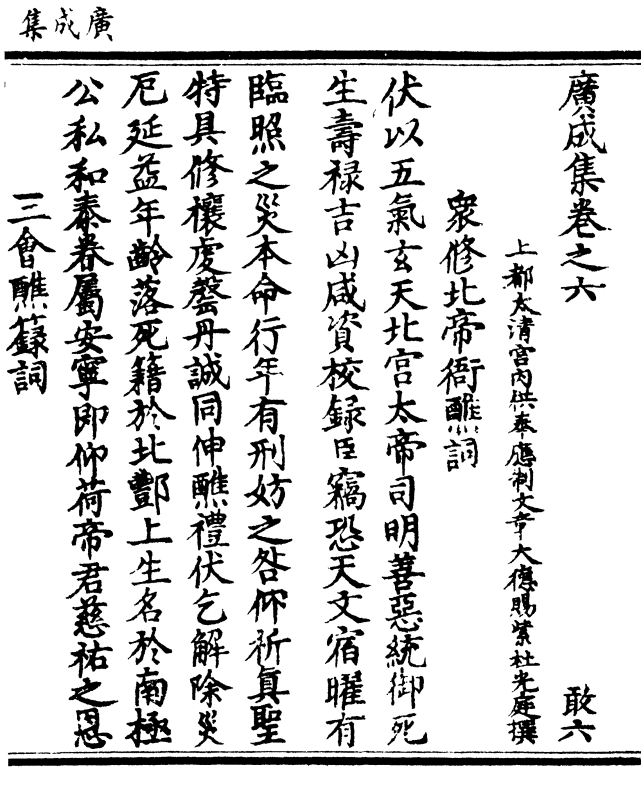 廣成集
廣成集卷之六
敢六
上都太清宮內供奉應制文章大德賜紫杜光庭撰
衆修北帝衙醮詞
伏以五氣玄天北宮太帝司明善惡統御死
生壽禄吉凶咸資校録臣竊恐天文宿曜有
臨照之災本命行年有刑妨之咎仰祈真聖
特具修禳虔罄丹誠同伸醮禮伏乞解除災
厄延益年齡落死籍於北酆上生名於南極
公私和泰眷屬安寧即仰荷帝君慈祐之恩
三會醮籙詞